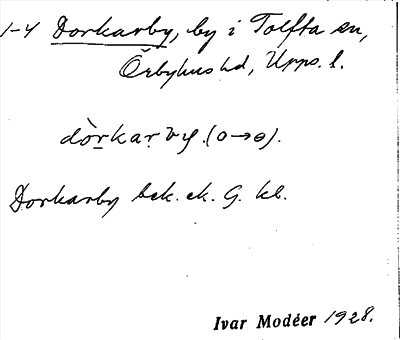 1-4 Dorkarby, by i Tolfta sn,
Örbyhus hd, Upps. l.
dòrkarby. (o→ɵ).
Dorkarby bek. ek. G. kl.
Ivar Modéer 1928.